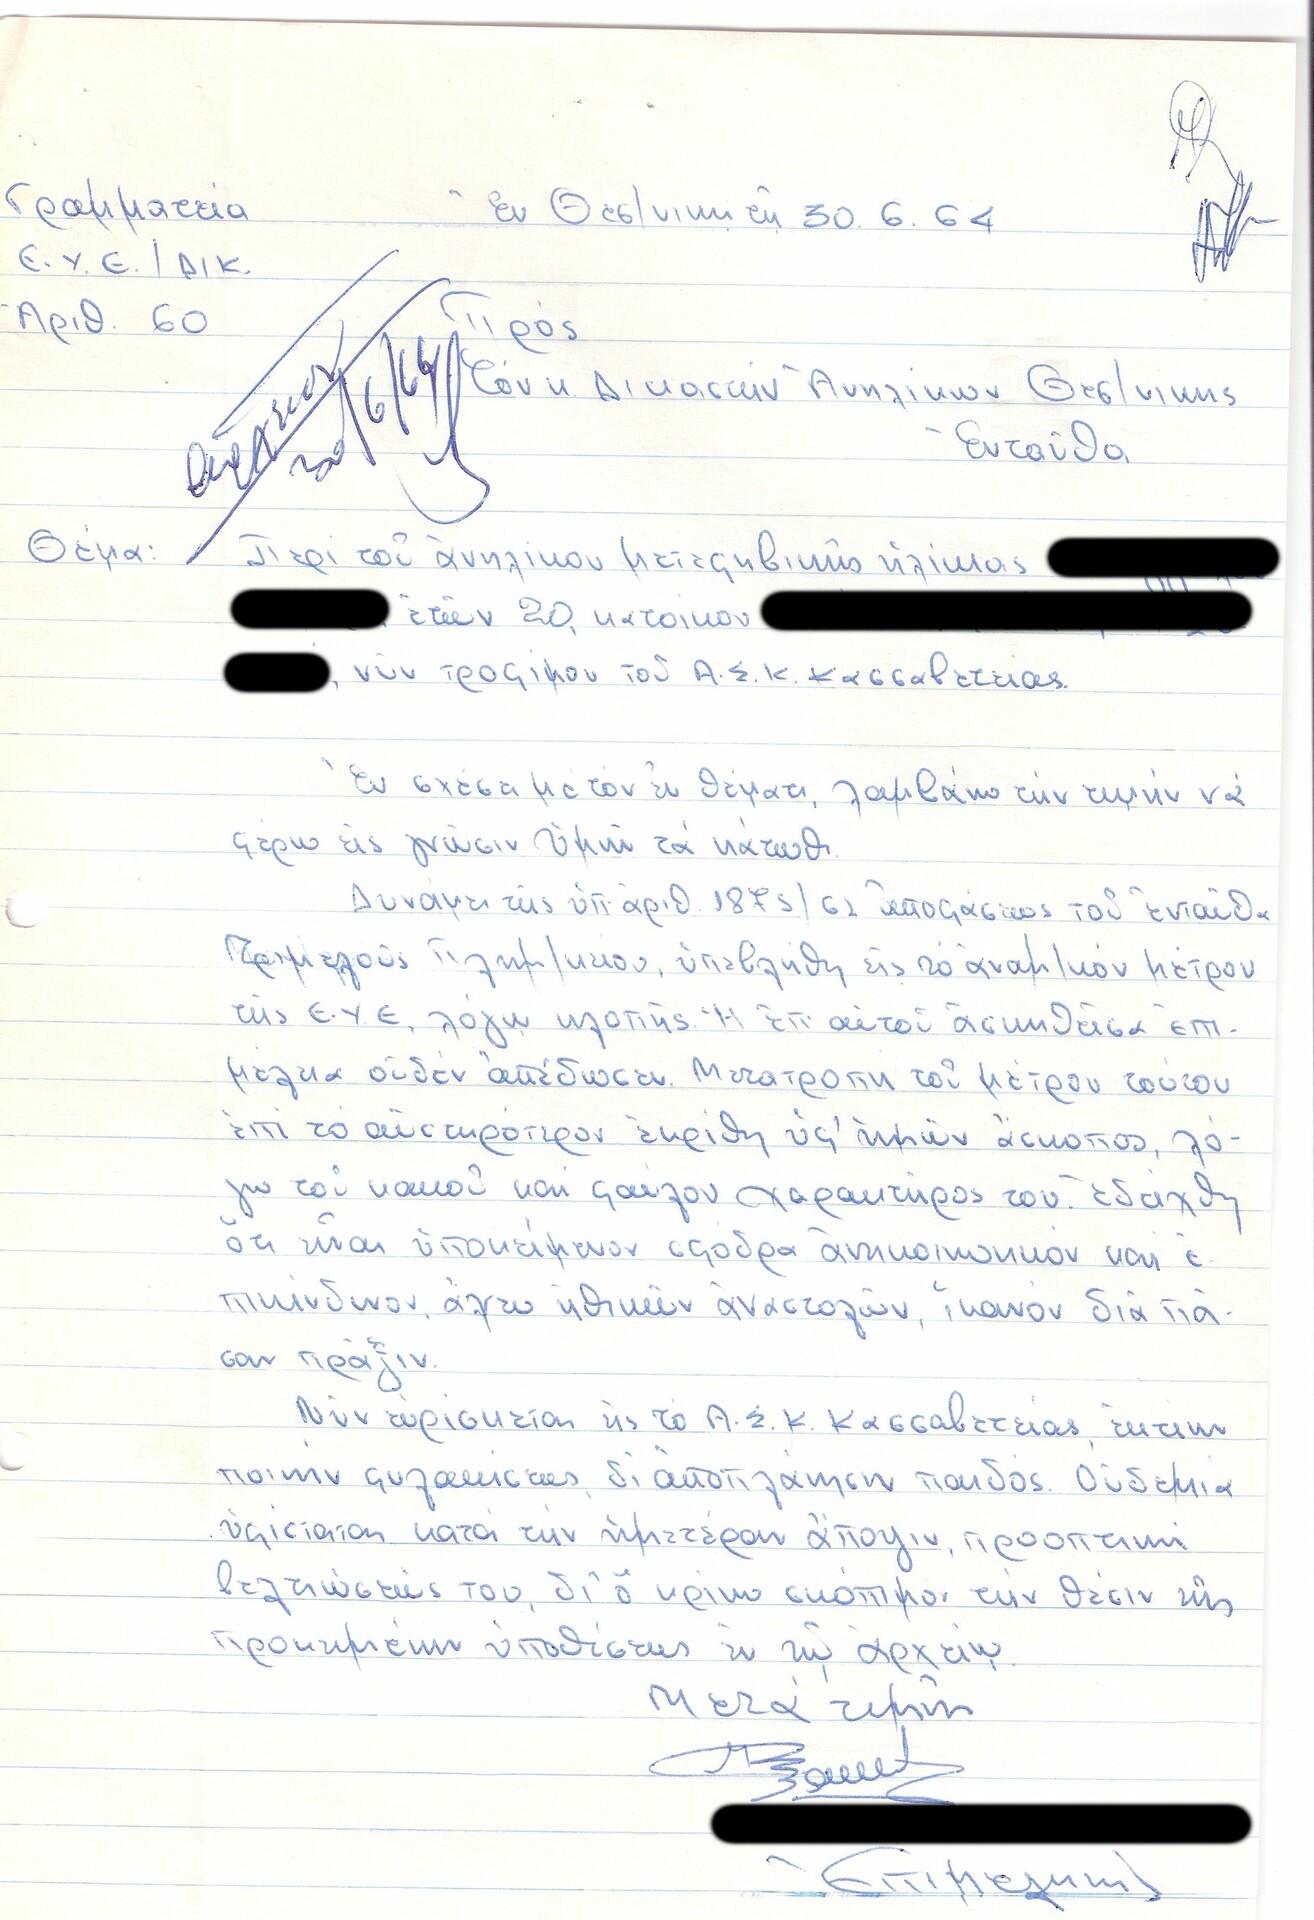 Γραμματεία
Ἐν Θεσ/νίκη τῆ 30.6.64
Ε.Υ.Ε./ΔΙΚ.
Ἀριθ. 60
Πρός
Τόν κ. Δικαστήν Ἀνηλίκων Θεσ/νίκης
Ἐνταῦθα
30/6/64
Θέμα: Περί τοῦ ἀνηλίκου μετεφηβικῆς ἡλικίας
ἐτῶν 20, κατοίκου
, νῦν τροφίμου τοῦ Α.Σ.Κ. Κασσαβετείας.
Ἐν σχέσει μέ τόν ἐν θέματι, λαμβάνω τήν τιμήν νά
φέρω εἰς γνῶσιν Ὑμῖν τά κάτωθι.
Δυνάμει τῆς ὑπ' ἀριθ. 1875/62 ἀποφάσεως τοῦ ἐνταῦθα
Τριμελοῦς Πλημ/κείου, ὑπεβλήθη εἰς τό ἀναμ/κόν μέτρον
τῆς Ε.Υ.Ε, λόγῳ κλοπῆς. Ἡ ἐπ' αὐτοῦ ἀσκηθεῖσα ἐπι-
μέλεια οὐδέν ἀπέδωσεν. Μετατροπή τοῦ μέτρου τούτου
ἐπί τό αὐστηρότερον ἐκρίθη ὑφ' ἡμῶν ἄσκοπος, λό-
γω τοῦ κακοῦ καί φαύλου χαρακτῆρος του. Ἐδείχθη
ὅτι εἶναι ὑποκείμενον σφόδρα ἀντικοινωνικόν καί ἐ-
πικίνδυνον, ἄνευ ἠθικῶν ἀναστολῶν, ἱκανόν διά πᾶ-
σαν πρᾶξιν.
Νῦν εὑρίσκεται εἰς τό Α.Σ.Κ. Κασσαβετείας, ἐκτίων
ποινήν φυλακίσεως, δι' ἀποπλάνησιν παιδός. Οὐδεμία
ὑφίσταται κατά τήν ἡμετέραν ἄποψιν, προοπτική
βελτιώσεώς του, δι' ὅ κρίνω σκόπιμον τήν θέσιν τῆς
προκειμένης ὑποθέσεως ἐν τῷ ἀρχείῳ.
Μετά τιμῆς
Ὁ Ἐπιμελητής